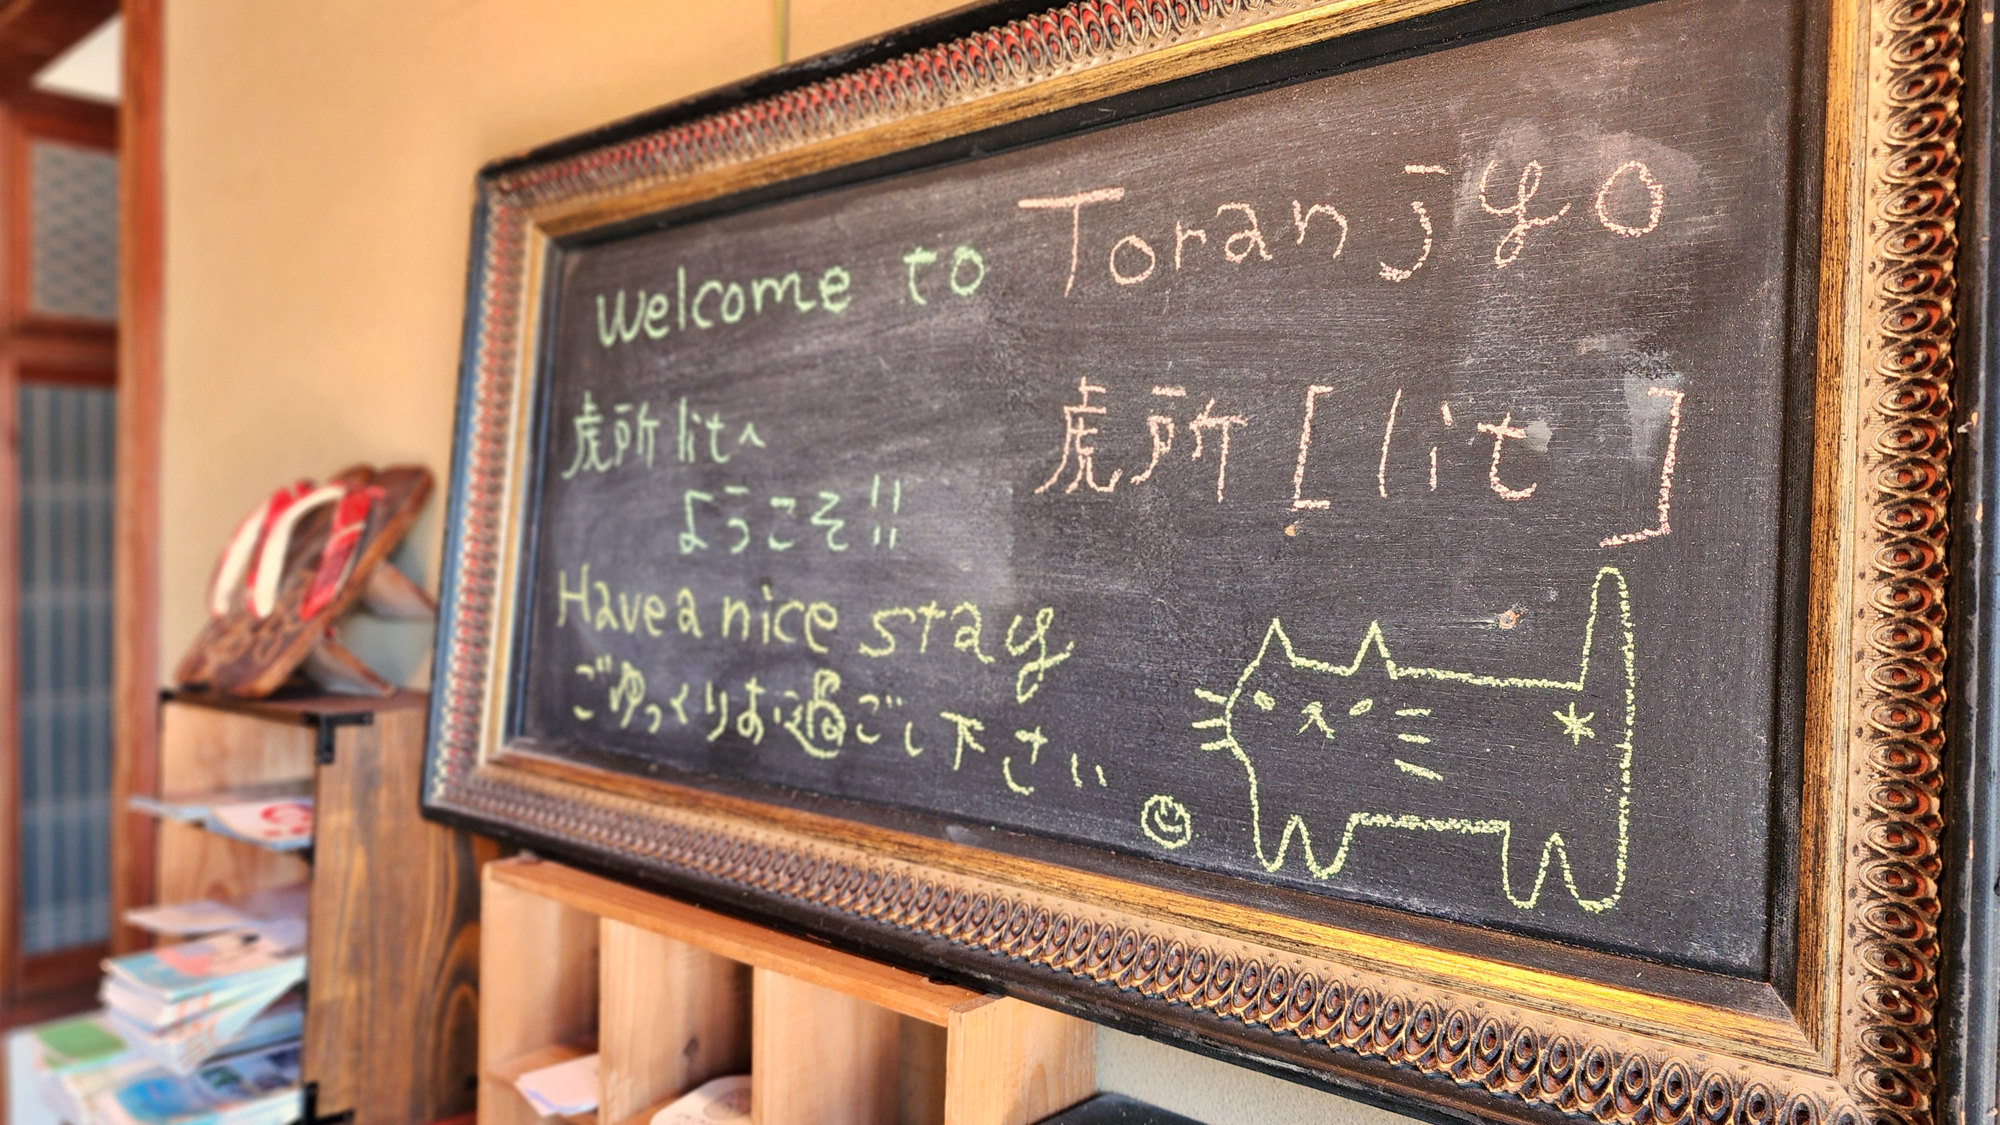 Welcome to Toranjyo
虎所litへ
ようこそ!!
虎所[lit]
Have a nice stay
ごゆっくりお過ごし下さい